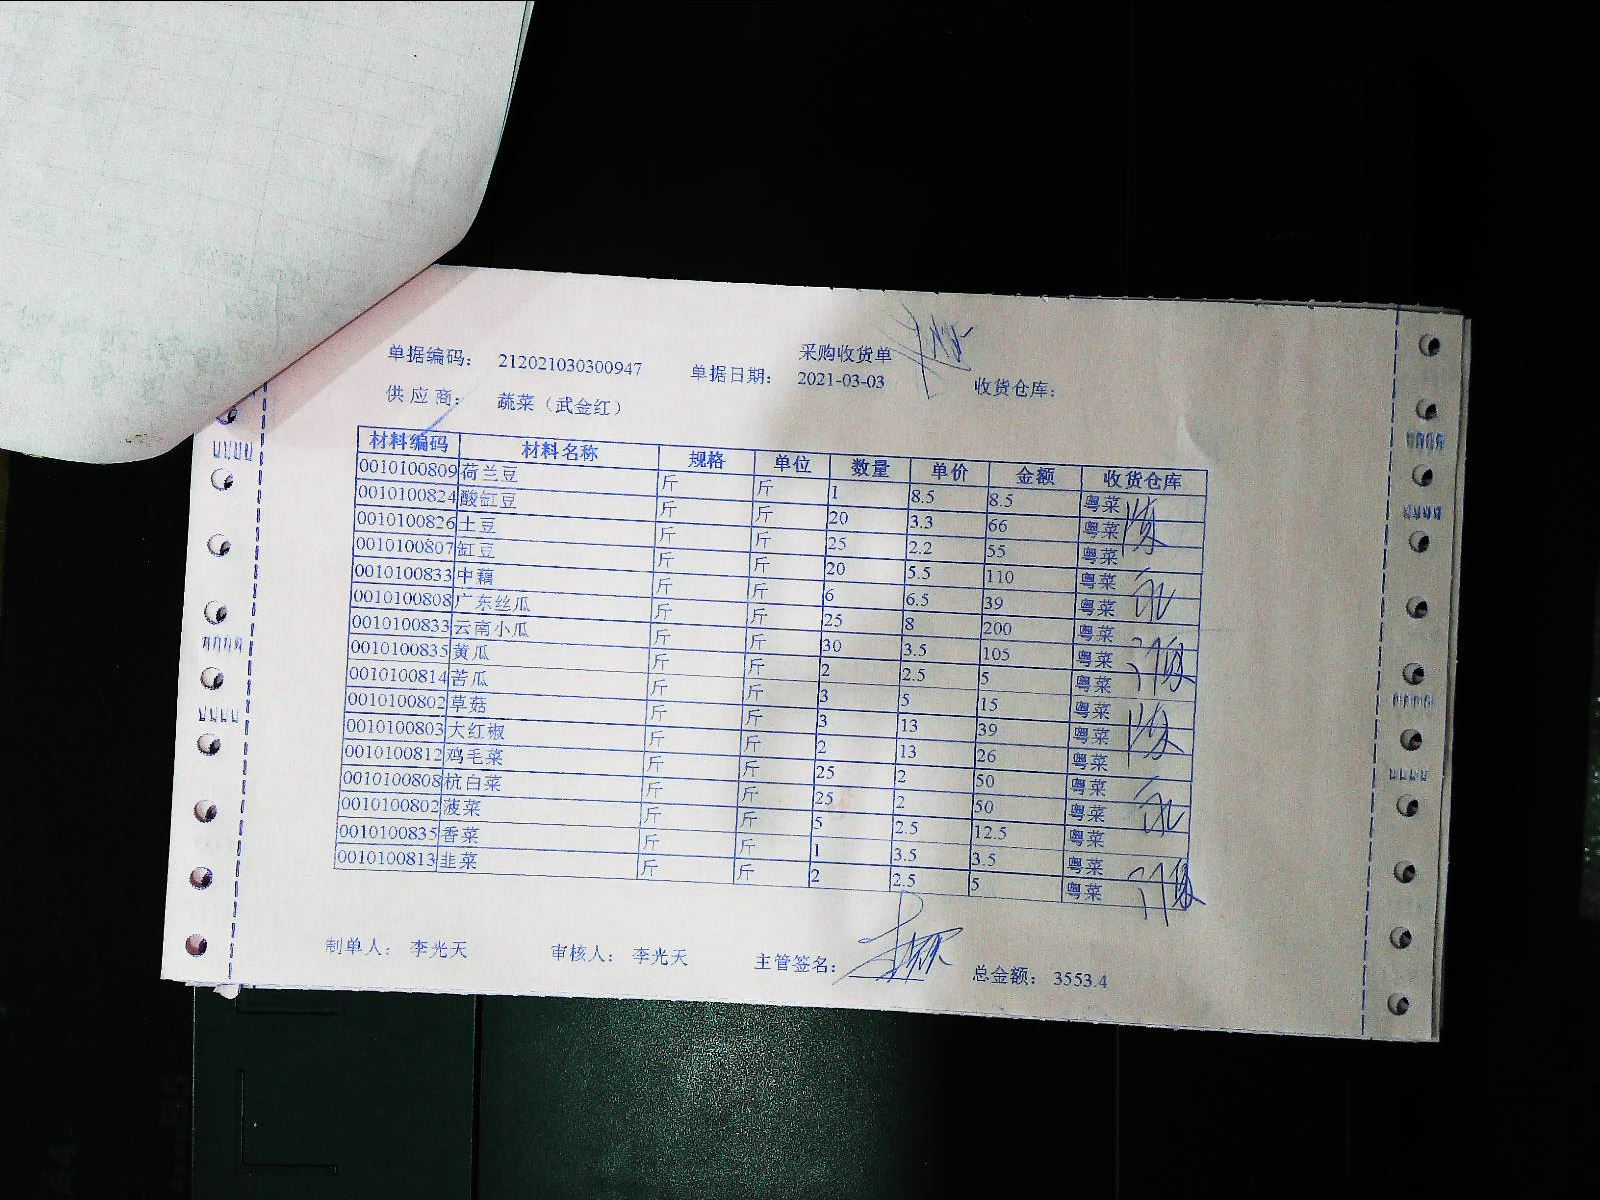 采购收货单
单据编码： 212021030300947 单据日期： 2021-03-03 收货仓库：
供应商： 蔬菜（武金红）
材料编码 材料名称 规格 单位 数量 单价 金额 收货仓库
0010100809 荷兰豆 斤 斤 1 8.5 8.5 粤菜
0010100824 酸缸豆 斤 斤 20 3.3 66 粤菜
0010100826 土豆 斤 斤 25 2.2 55 粤菜
0010100807 缸豆 斤 斤 20 5.5 110 粤菜
0010100833 中藕 斤 斤 6 6.5 39 粤菜
0010100808 广东丝瓜 斤 斤 25 8 200 粤菜
0010100833 云南小瓜 斤 斤 30 3.5 105 粤菜
0010100835 黄瓜 斤 斤 2 2.5 5 粤菜
0010100814 苦瓜 斤 斤 3 5 15 粤菜
0010100802 草菇 斤 斤 3 13 39 粤菜
0010100803 大红椒 斤 斤 2 13 26 粤菜
0010100812 鸡毛菜 斤 斤 25 2 50 粤菜
0010100808 杭白菜 斤 斤 25 2 50 粤菜
0010100802 菠菜 斤 斤 5 2.5 12.5 粤菜
0010100835 香菜 斤 斤 1 3.5 3.5 粤菜
0010100813 韭菜 斤 斤 2 2.5 5 粤菜
制单人： 李光天 审核人： 李光天 主管签名： 总金额： 3553.4